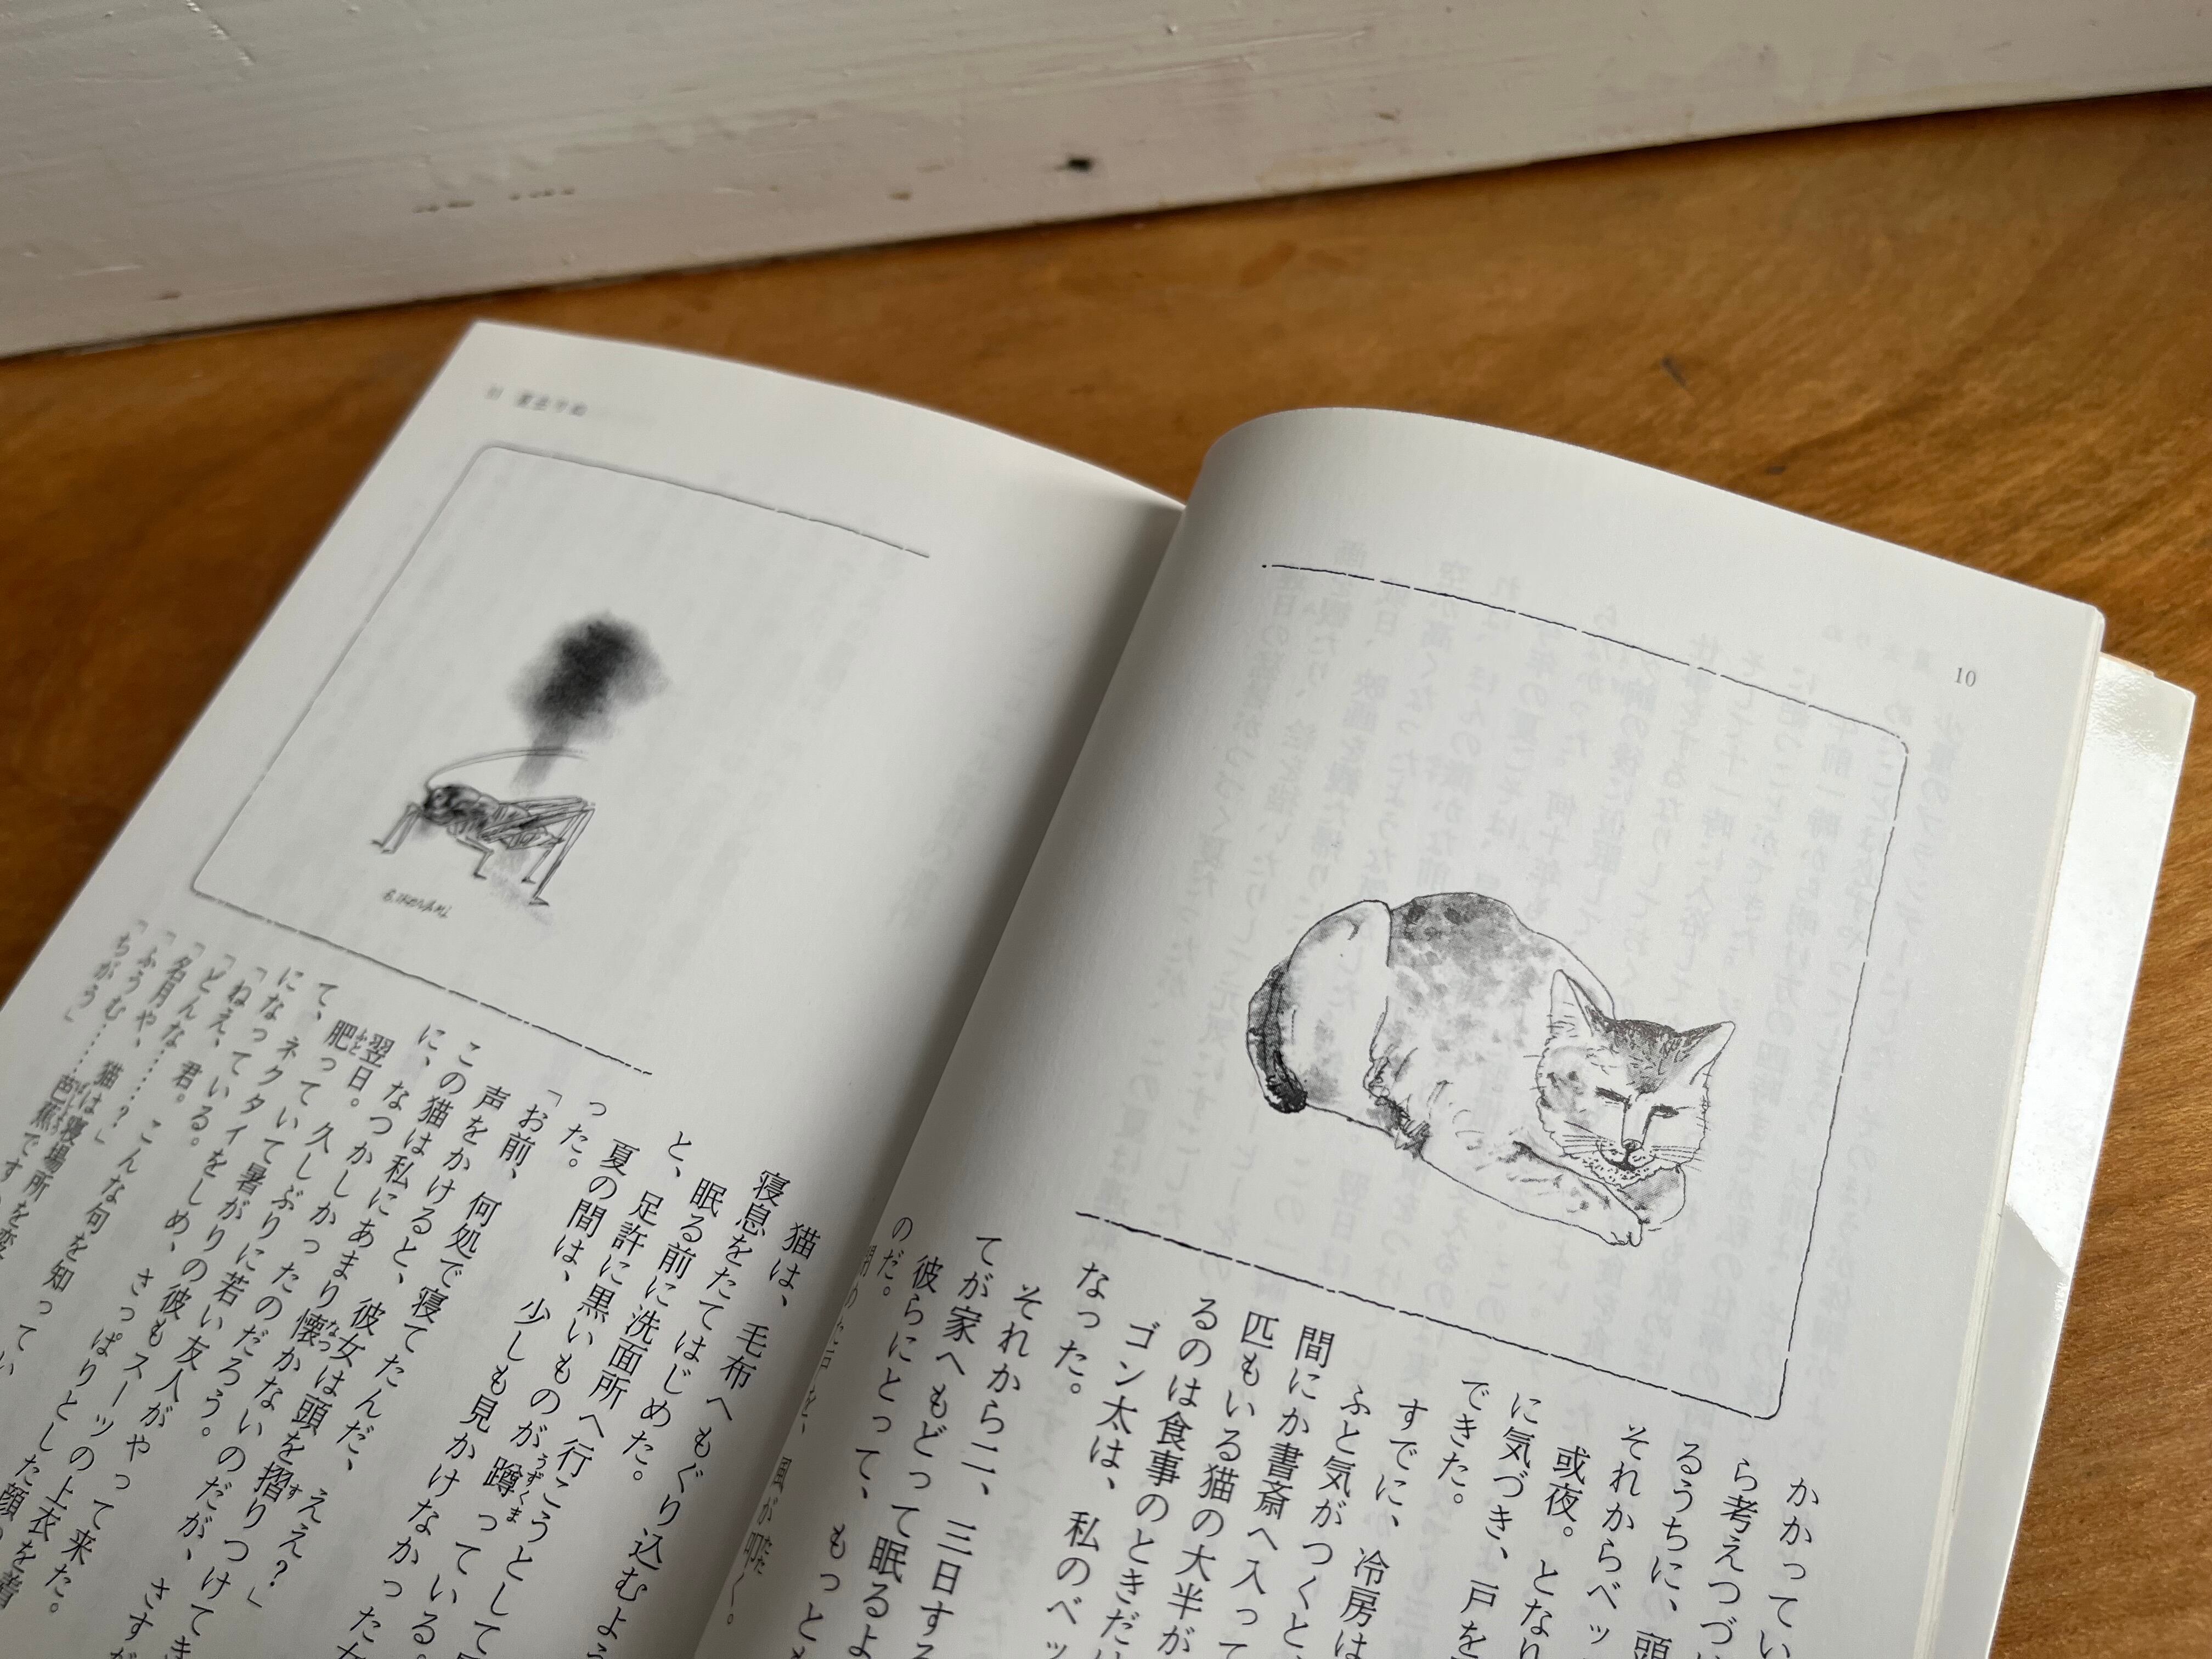 10
かかってい
ら考えつづ
るうちに、頭
それからベッ
或夜。となり
に気づき、戸を
できた。
すでに、冷房は
ふと気がつくと、
間にか書斎へ入って
匹もいる猫の大半が
るのは食事のときだけ
ゴン太は、私のベッ
なった。
それから二、三日する
てが家へもどって眠るよ
彼らにとって、もっとも
のだ。
風が啼く。
猫は、毛布へもぐり込むよう
寝息をたてはじめた。
と、眠る前に洗面所へ行こうとして
足許に黒いものが蹲っている。
夏の間は、少しも見かけなかった
った。
「お前、何処で寝てたんだ、ええ?」
声をかけると、彼女は頭を摺りつけてき
この猫は私にあまり懐かないのだが、さすが
に、なつかしかったのだろう。
翌日。
久しぶりに若い友人がやって来た。
肥っていて暑がりの彼もスーツの上衣を着
て、ネクタイをしめ、さっぱりとした顔
になっている。
「ねえ、君。こんな句を知ってい
「どんな……?」
「名月や、猫は寝場所を変
「ふうむ……芭蕉です
「ちがう」